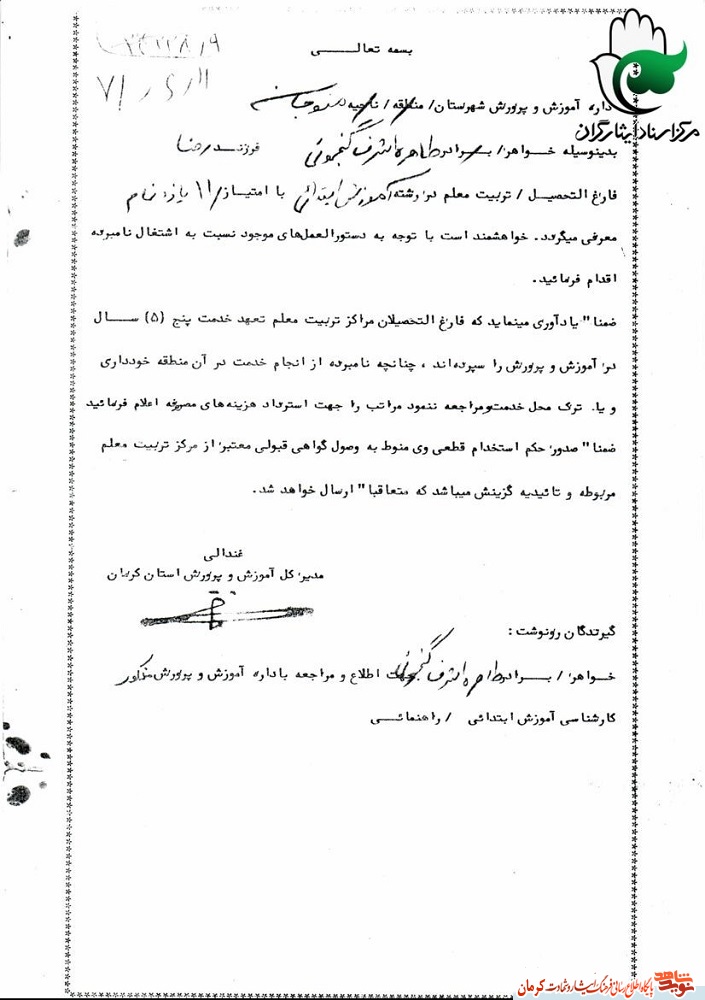 بسمه تعالی
۷۱/۶/۱۱
مرکز اسناد ایثارگران
اداره آموزش و پرورش شهرستان / منطقه / ناحیه منوجان
بدینوسیله خواهر / برادر طاهره اشرف گنجوئی فرزند رضا
فارغ التحصیل / تربیت معلم در رشته آموزش ابتدائی با امتیاز ۱۱ یازده تمام
معرفی میگردد. خواهشمند است با توجه به دستورالعمل‌های موجود نسبت به اشتغال نامبرده
اقدام فرمائید.
ضمنا" یادآوری مینماید که فارغ التحصیلان مراکز تربیت معلم تعهد خدمت پنج (۵) سال
در آموزش و پرورش را سپرده‌اند ، چنانچه نامبرده از انجام خدمت در آن منطقه خودداری
و یا. ترک محل خدمت ومراجعه ننمود مراتب را جهت استرداد هزینه‌های مصرفه اعلام فرمائید
ضمنا" صدور حکم استخدام قطعی وی منوط به وصول گواهی قبولی معتبر از مرکز تربیت معلم
مربوطه و تائیدیه گزینش میباشد که متعاقبا" ارسال خواهد شد.
غندالی
مدیر کل آموزش و پرورش استان کرمان
گیرندگان رونوشت :
خواهر / برادر طاهره اشرف گنجوئی جهت اطلاع و مراجعه باداره آموزش و پرورش مذکور
کارشناسی آموزش ابتدائی / راهنمائی
نوید شاهد پایگاه اطلاع رسانی فرهنگ ایثار و شهادت کرمان